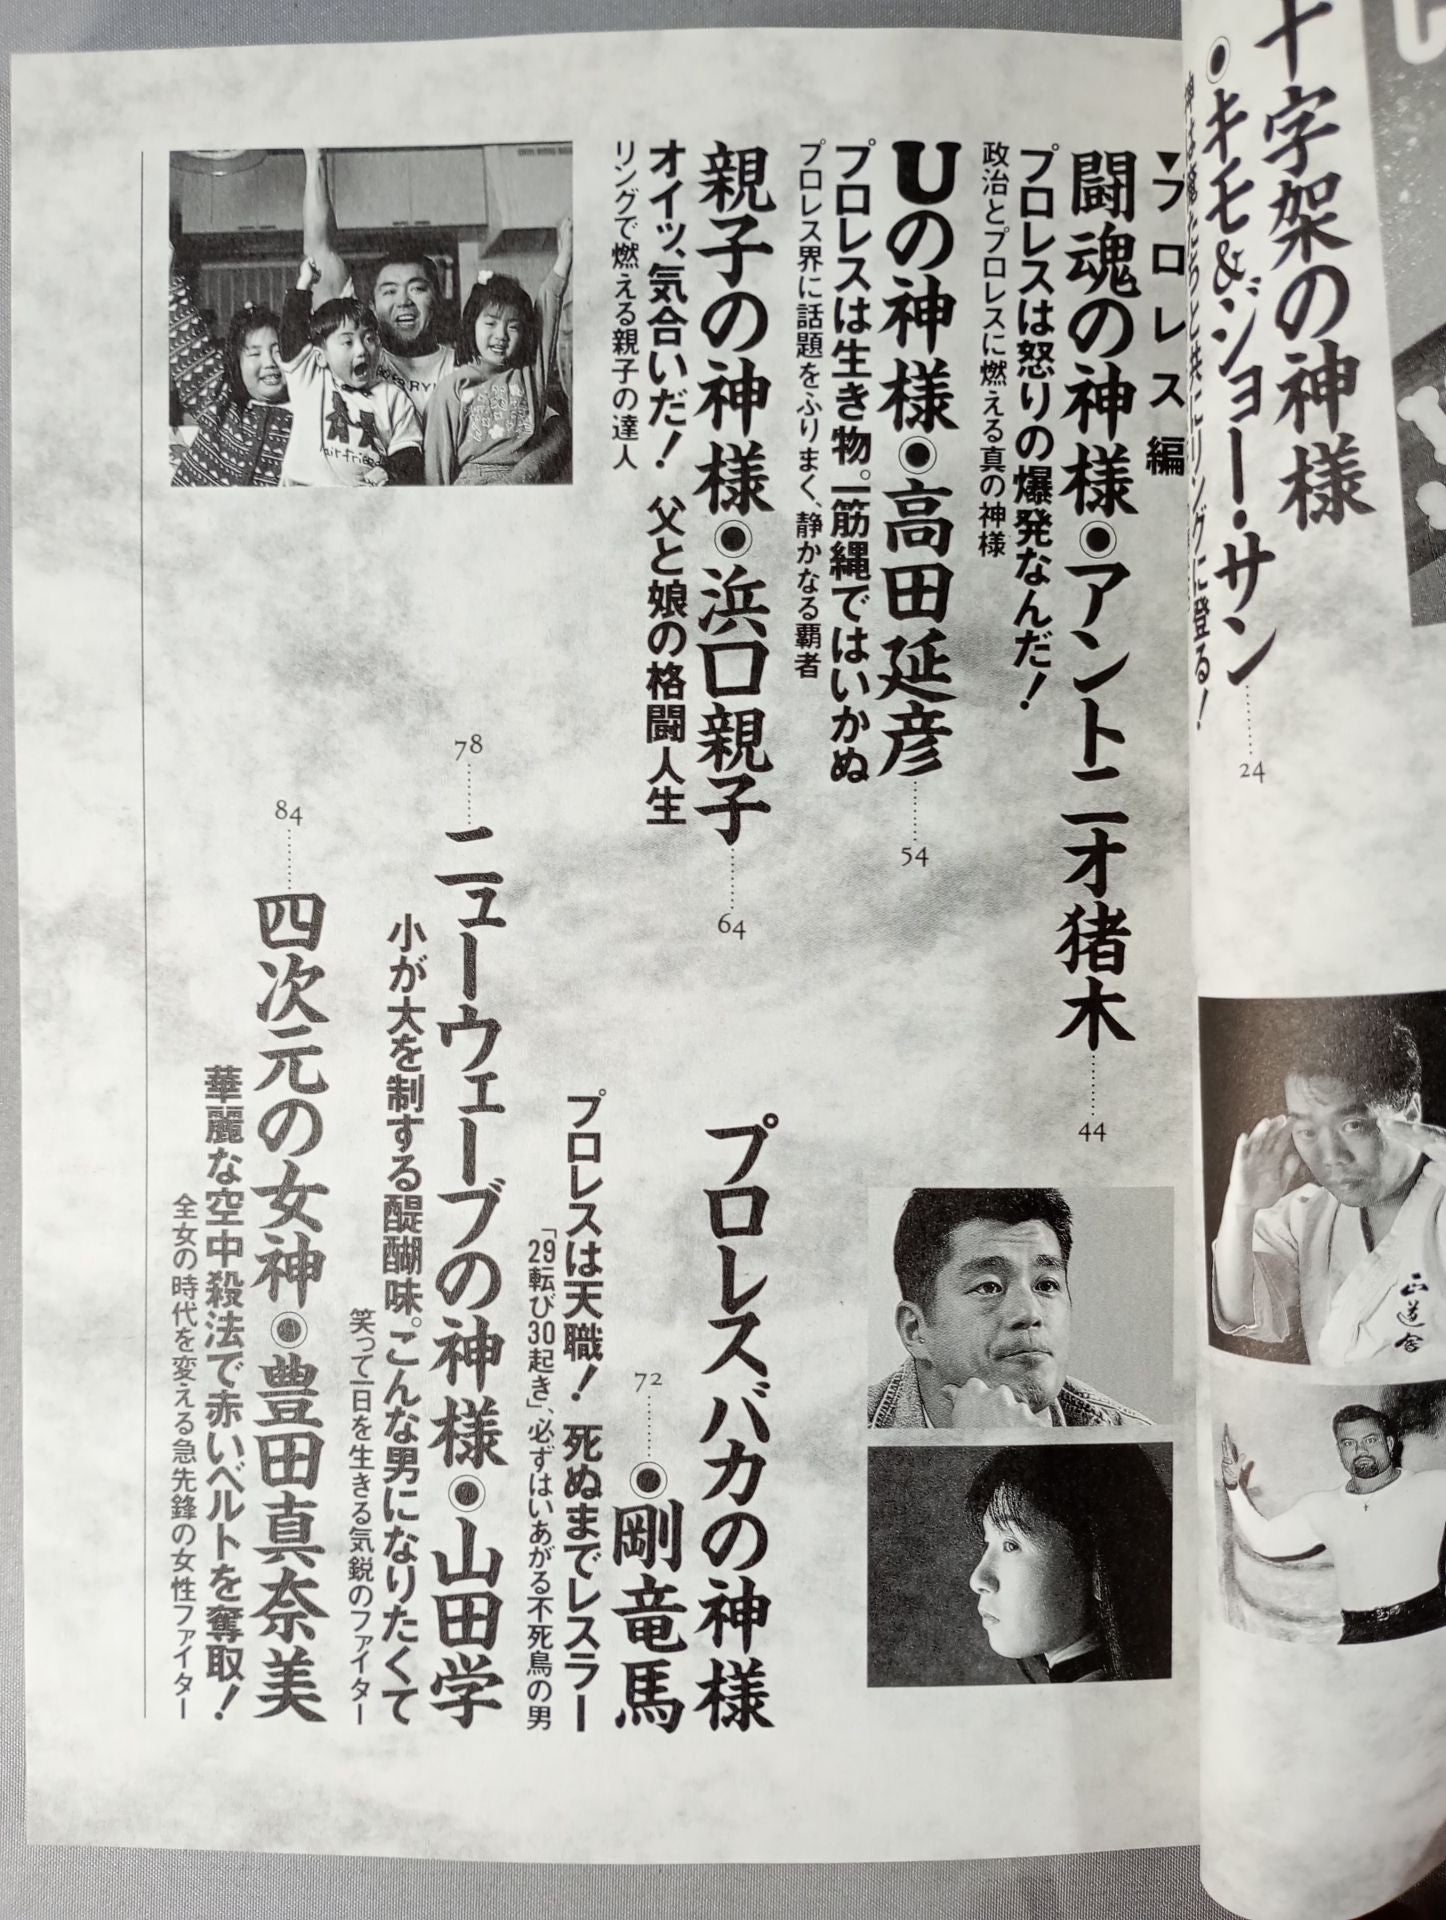 十字架の神様
●キモ&ジョー・サン
24
に登る!
正道会
▼プロレス編
闘魂の神様●アントニオ猪木
44
プロレスは怒りの爆発なんだ!
政治とプロレスに燃える真の神様
Uの神様●高田延彦
54
プロレスは生き物。一筋縄ではいかぬ
プロレス界に話題をふりまく、静かなる覇者
親子の神様●浜口親子
64
オイッ、気合いだ! 父と娘の格闘人生
リングで燃える親子の達人
プロレスバカの神様
72
●剛竜馬
プロレスは天職! 死ぬまでレスラー
「29転び30起き」、必ずはいあがる不死鳥の男
78
ニューウェーブの神様●山田学
小が大を制する醍醐味。こんな男になりたくて
笑って一日を生きる気鋭のファイター
84
四次元の女神●豊田真奈美
華麗な空中殺法で赤いベルトを奪取!
全女の時代を変える急先鋒の女性ファイター